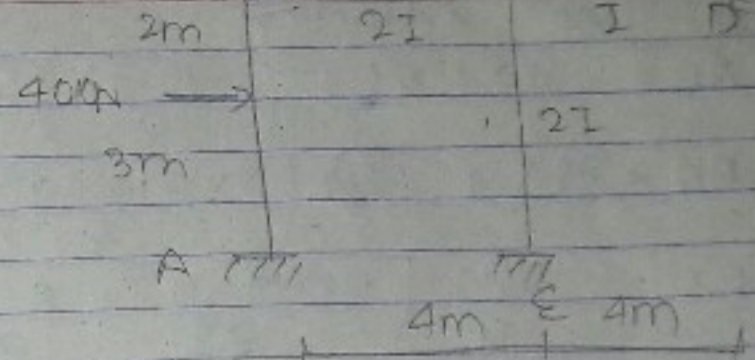 2m 2I I D
40KN
2I
3m
A
E
4m 4m